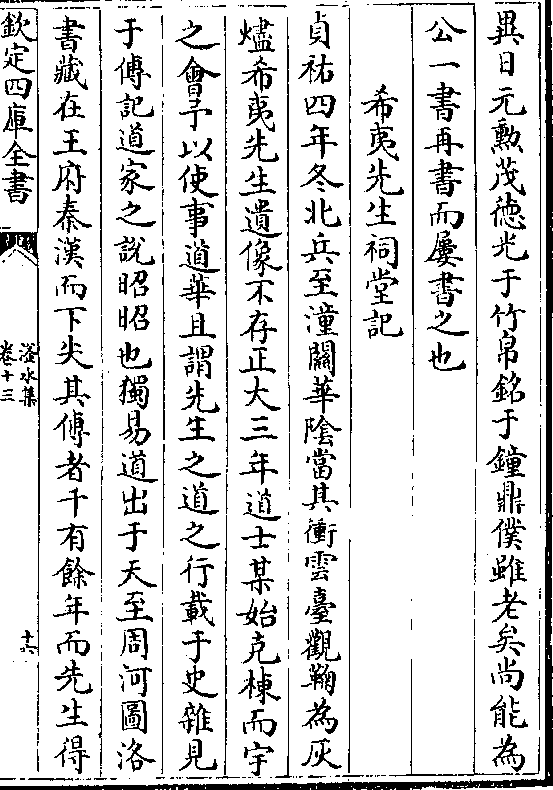 異日元勲茂德光于竹帛銘于鐘鼎僕雖老矣尚能為
公一書再書而屢書之也
希夷先生祠堂記
貞祐四年冬北兵至潼關華陰當其衝雲臺觀鞠為灰
燼希夷先生遺像不存正大三年道士某始克棟而宇
之會予以使事道華且謂先生之道之行載于史雜見
于傳記道家之說昭昭也獨易道出于天至周河圖洛
書藏在王府秦漢而下失其傳者千有餘年而先生得
欽定四庫全書
滏水集
卷十三
十六